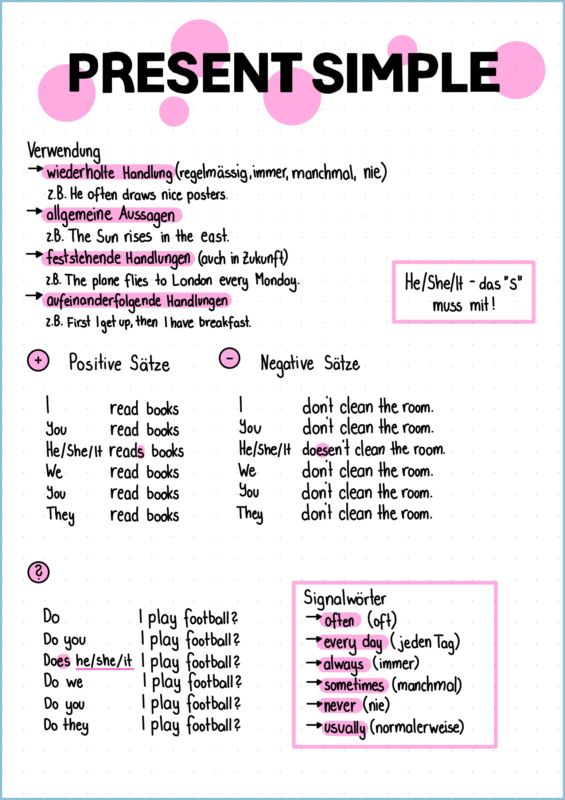 PRESENT SIMPLE
Verwendung
→ wiederholte Handlung (regelmässig, immer, manchmal, nie)
z.B. He often draws nice posters.
→ allgemeine Aussagen
z.B. The Sun rises in the east.
→ feststehende Handlungen (auch in Zukunft)
z.B. The plane flies to London every Monday.
→ aufeinanderfolgende Handlungen
z.B. First I get up, then I have breakfast.
He/She/It - das "S"
muss mit!
+ Positive Sätze
I read books
You read books
He/She/It reads books
We read books
You read books
They read books
- Negative Sätze
I don't clean the room.
You don't clean the room.
He/She/It doesen't clean the room.
We don't clean the room.
You don't clean the room.
They don't clean the room.
?
Do I play football?
Do you I play football?
Does he/she/it I play football?
Do we I play football?
Do you I play football?
Do they I play football?
Signalwörter
→ often (oft)
→ every day (jeden Tag)
→ always (immer)
→ sometimes (manchmal)
→ never (nie)
→ usually (normalerweise)